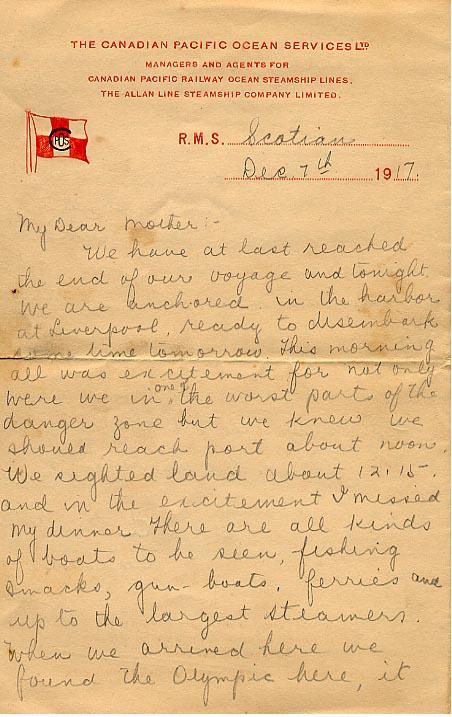 THE CANADIAN PACIFIC OCEAN SERVICES LTD
MANAGERS AND AGENTS FOR
CANADIAN PACIFIC RAILWAY OCEAN STEAMSHIP LINES.
THE ALLAN LINE STEAMSHIP COMPANY LIMITED.
CPOS
R.M.S. Scotian
Dec 7th 1917.
My Dear Mother:-
We have at last reached
the end of our voyage and tonight
we are anchored in the harbor
at Liverpool, ready to disembark
some time tomorrow. This morning
all was excitement for not only
were we in one of the worst parts of the
danger zone but we knew we
should reach port about noon.
We sighted land about 12:15
and in the excitement I missed
my dinner. There are all kinds
of boats to be seen, fishing
smacks, gun-boats, ferries and
up to the largest steamers.
When we arrived here we
found the Olympic here, it